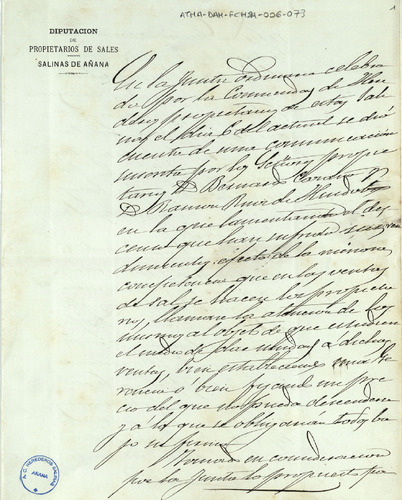 ATHA-DAH-FCHSA-006-073
1
DIPUTACION
DE
PROPIETARIOS DE SALES
SALINAS DE AÑANA
En la Junta ordinaria celebra
da por la Comunidad de
propietarios de estas Sali
nas el dia 6 del actual se dió
cuenta de una comunicacion
suscrita por los Señores propie
tarios D. Bernardo y
D. Ramon Ruiz de
en la que lamentando el des
censo que han sufrido sus
efecto de la
competencia que en las ventas
de sal se hacen los propieta
rios, llaman la atencion de los
mismos al objeto de que estudien
el medio de poner a dichas
ventas, bien estableciendo una Ge
rencia o bien fijando un pre
cio del que no pueda descenderse
y á lo que se obligarán todos ba
jo su firma.
Tomado en consideracion
por la Junta lo propuesto por
A.C. HEREDEROS
AÑANA